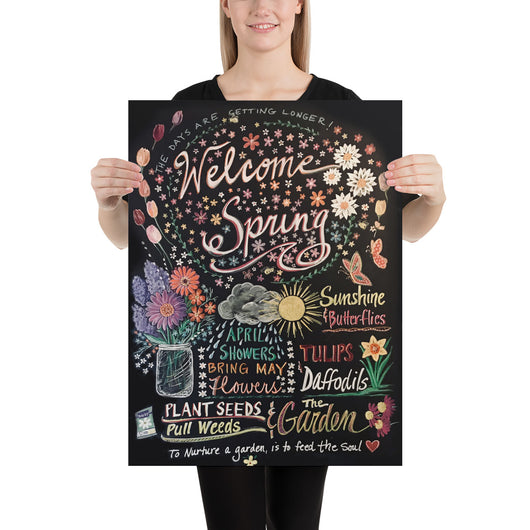 THE DAYS ARE GETTING LONGER!
Welcome
Spring
Sunshine
& Butterflies
APRIL
SHOWERS
BRING MAY
flowers
TULIPS
& Daffodils
PLANT SEEDS
Pull Weeds
& The
Garden
To Nurture a garden, is to feed the Soul